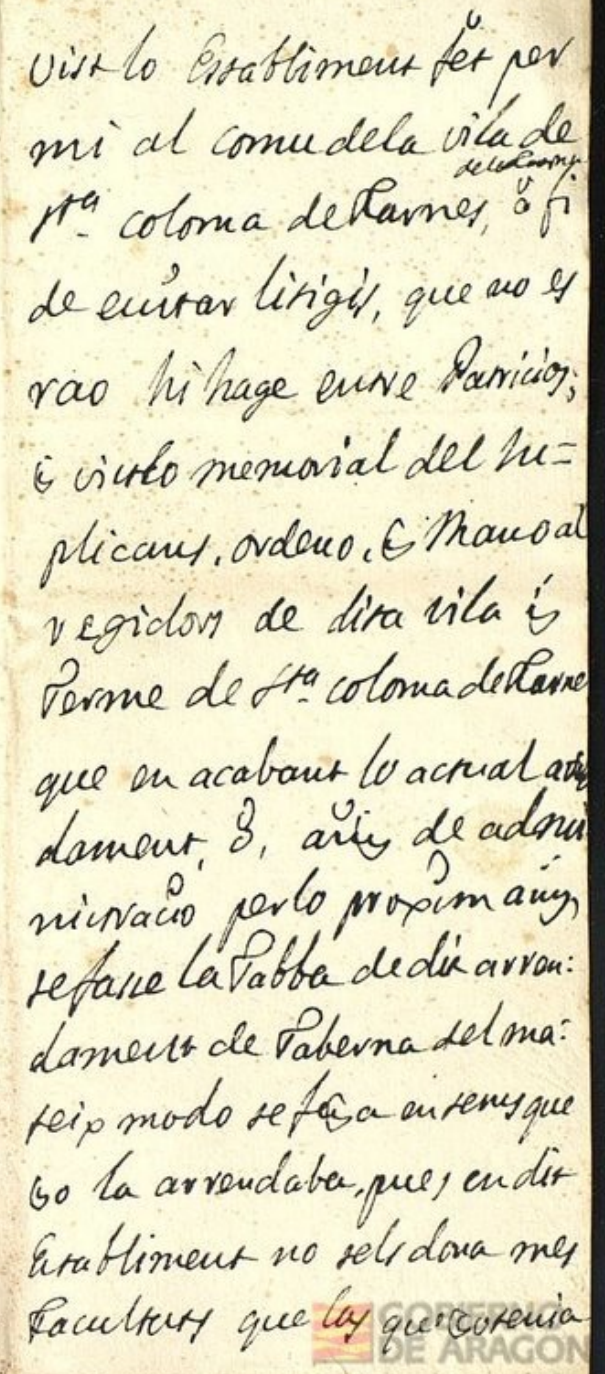 Vist lo Establiment fet per
mi al comu dela vila de
dela Taverna
Sta coloma de Farnes, â fi
de euitar litigis, que no es
rao hi hage entre Patricios;
y vist lo memorial del su=
plicant, ordeno, y Mano al
regidors de dita vila y
Terme de Sta coloma de Farne
que en acabant lo actual arren
dament, ô, añy de admi
nistracio perlo proxim añy
sefasse la Tabba de dit arren:
dament de Taberna del ma:
teix modo se feya en temps que
yo la arrendaba, pues en dit
Establiment no sels dona mes
Facultats que las que yo tenia
GOBIERNO
DE ARAGON